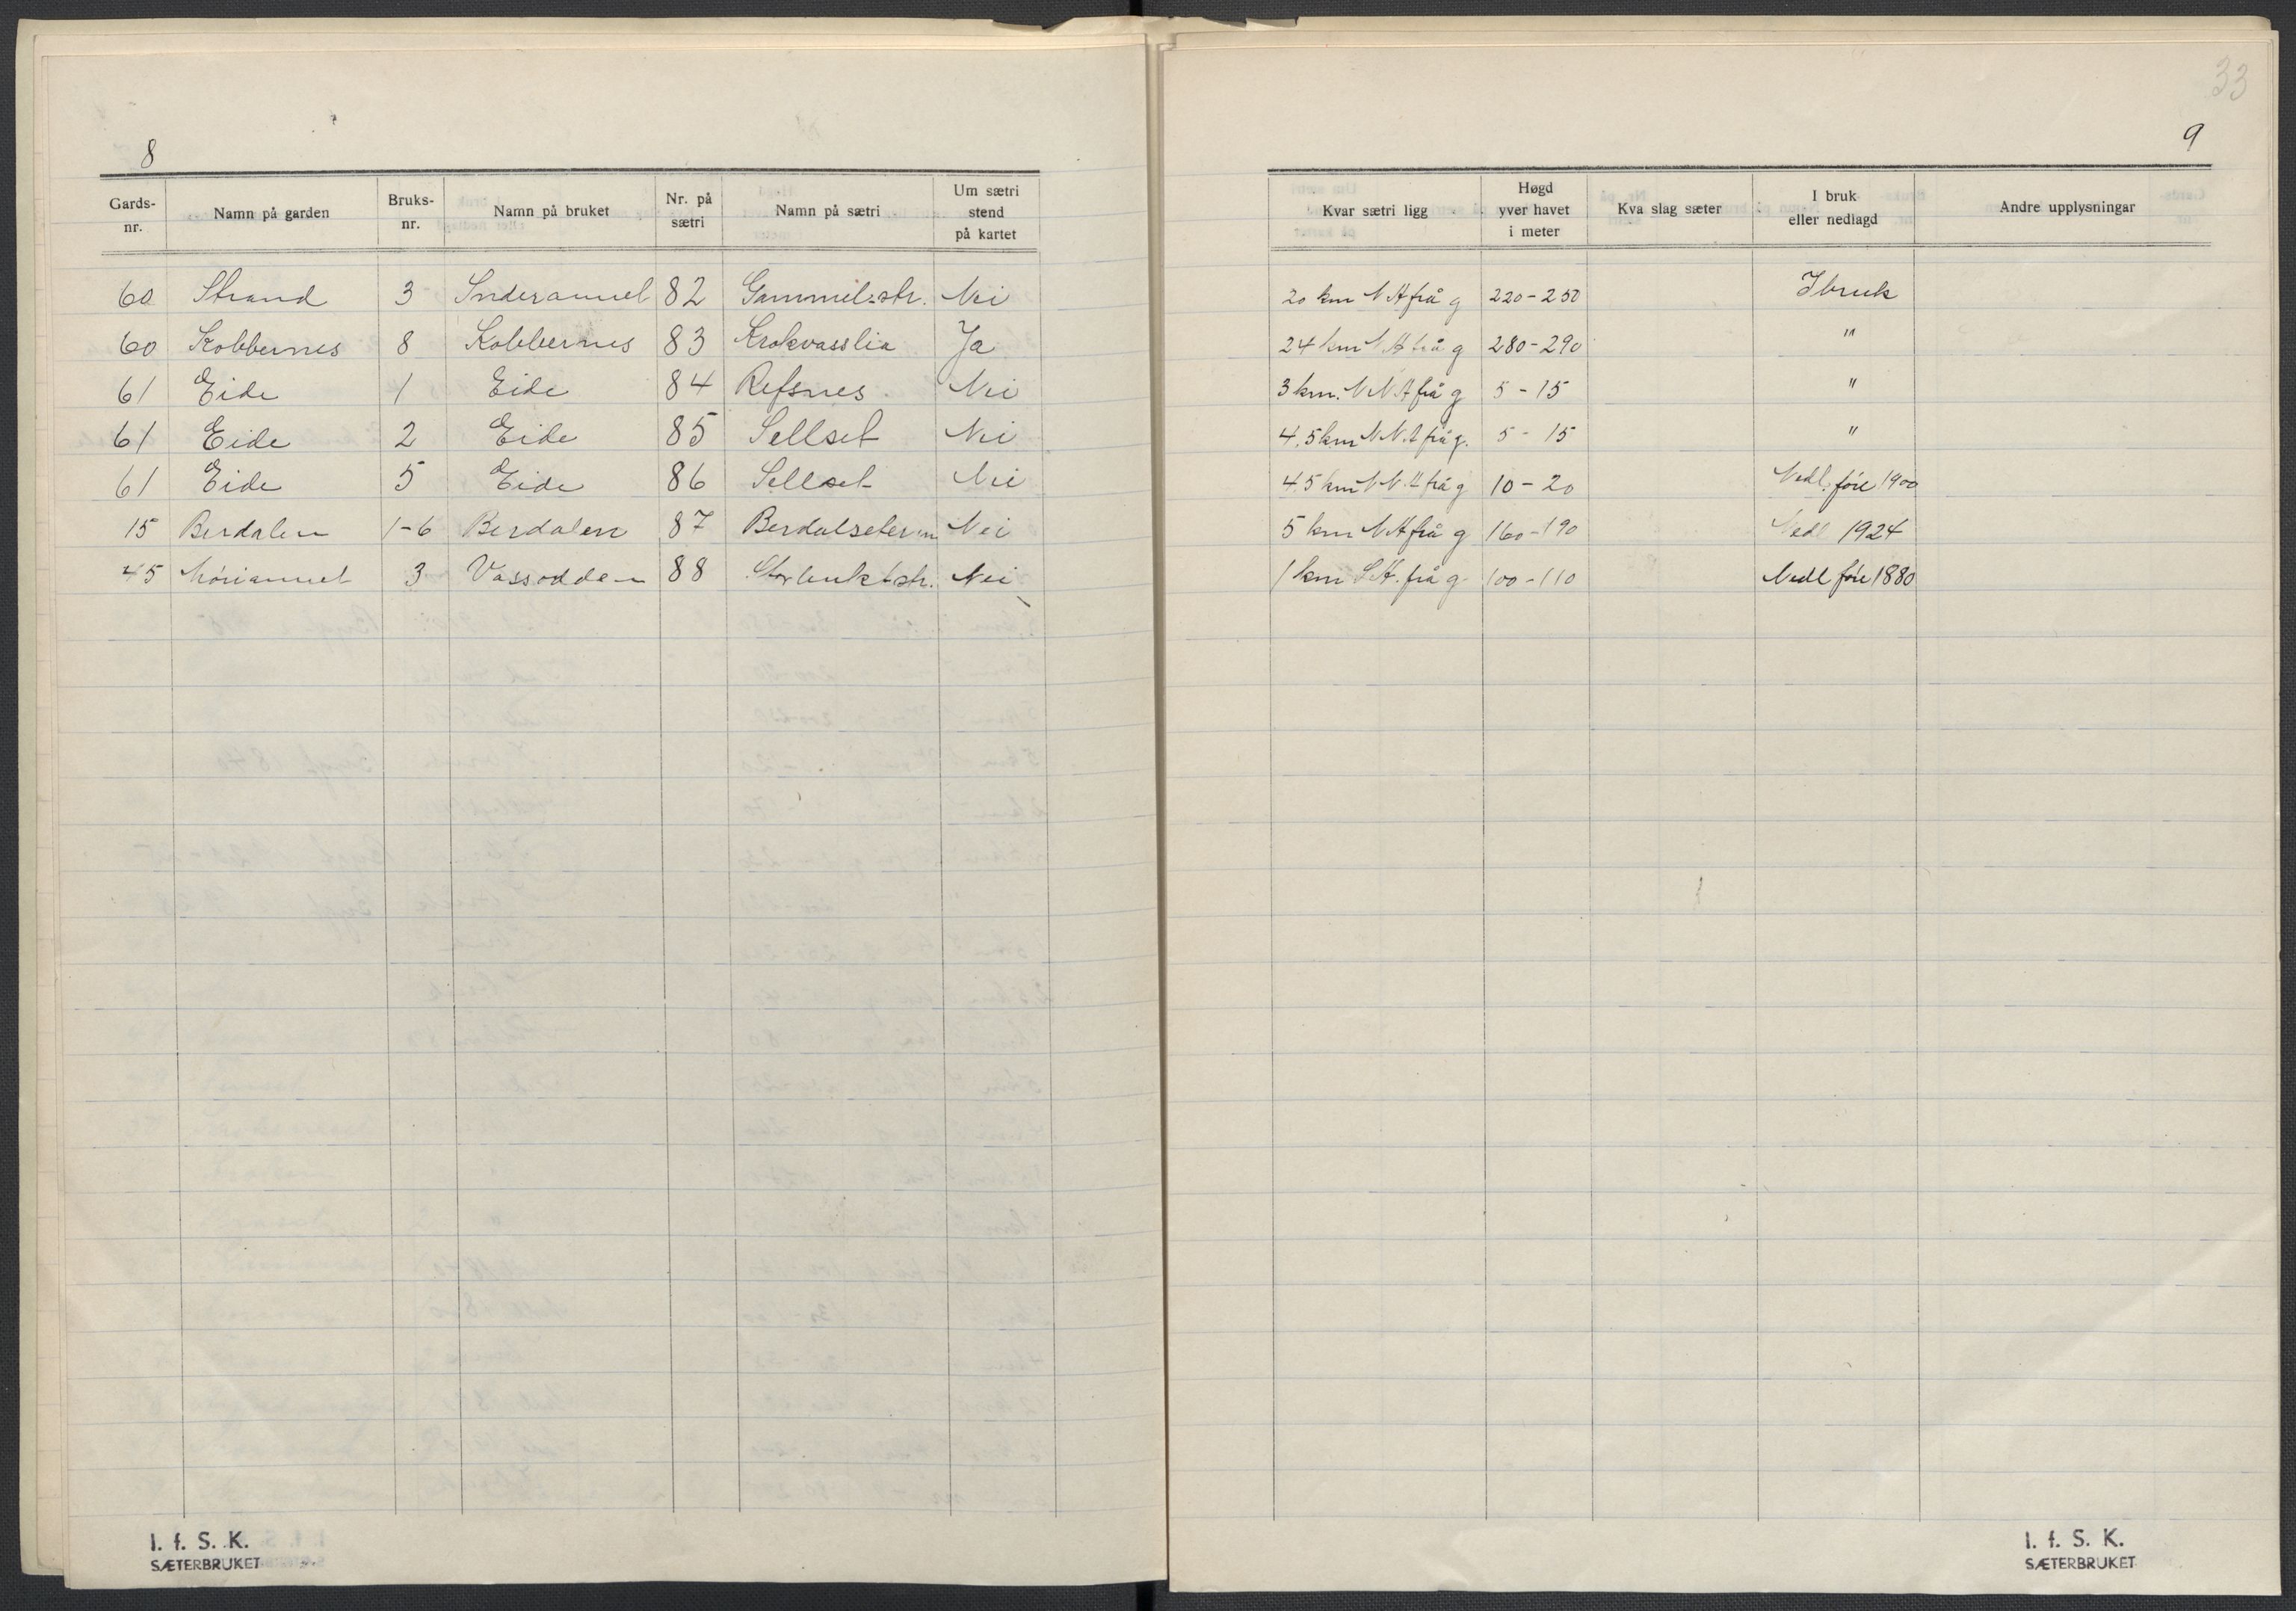 8
Gards-nr. Namn på garden Bruks-nr. Namn på bruket Nr. på sætri Namn på sætri Um sætri stend på kartet
60 Strand 3 Inderaunet 82 Gammil.str. Nei
60 Kobbernes 8 Kobbernes 83 Krokvasslia Ja
61 Eide 1 Eide 84 Refsnes Nei
61 Eide 2 Eide 85 Sellset Nei
61 Eide 5 Eide 86 Sellset Nei
15 Berdalen 1-6 Berdalen 87 Berdalseteren Nei
45 3 Vassodden 88 Nei
I. f. S. K.
SÆTERBRUKET
33
9
Kvar sætri ligg Høgd yver havet i meter Kva slag sæter I bruk eller nedlagd Andre upplysningar
20 km N A frå g 220-250 I bruk
24 km N A frå g 280-290 "
3 km. N N A frå g 5-15 "
4,5 km N N. A frå g. 5-15 "
4,5 km N N. A frå g 10-20 Nedl. före 1900
5 km N A frå g 160-190 Nedl 1924
1 km S A. frå g 100-110 Nedl före 1880
I. f. S. K.
SÆTERBRUKET